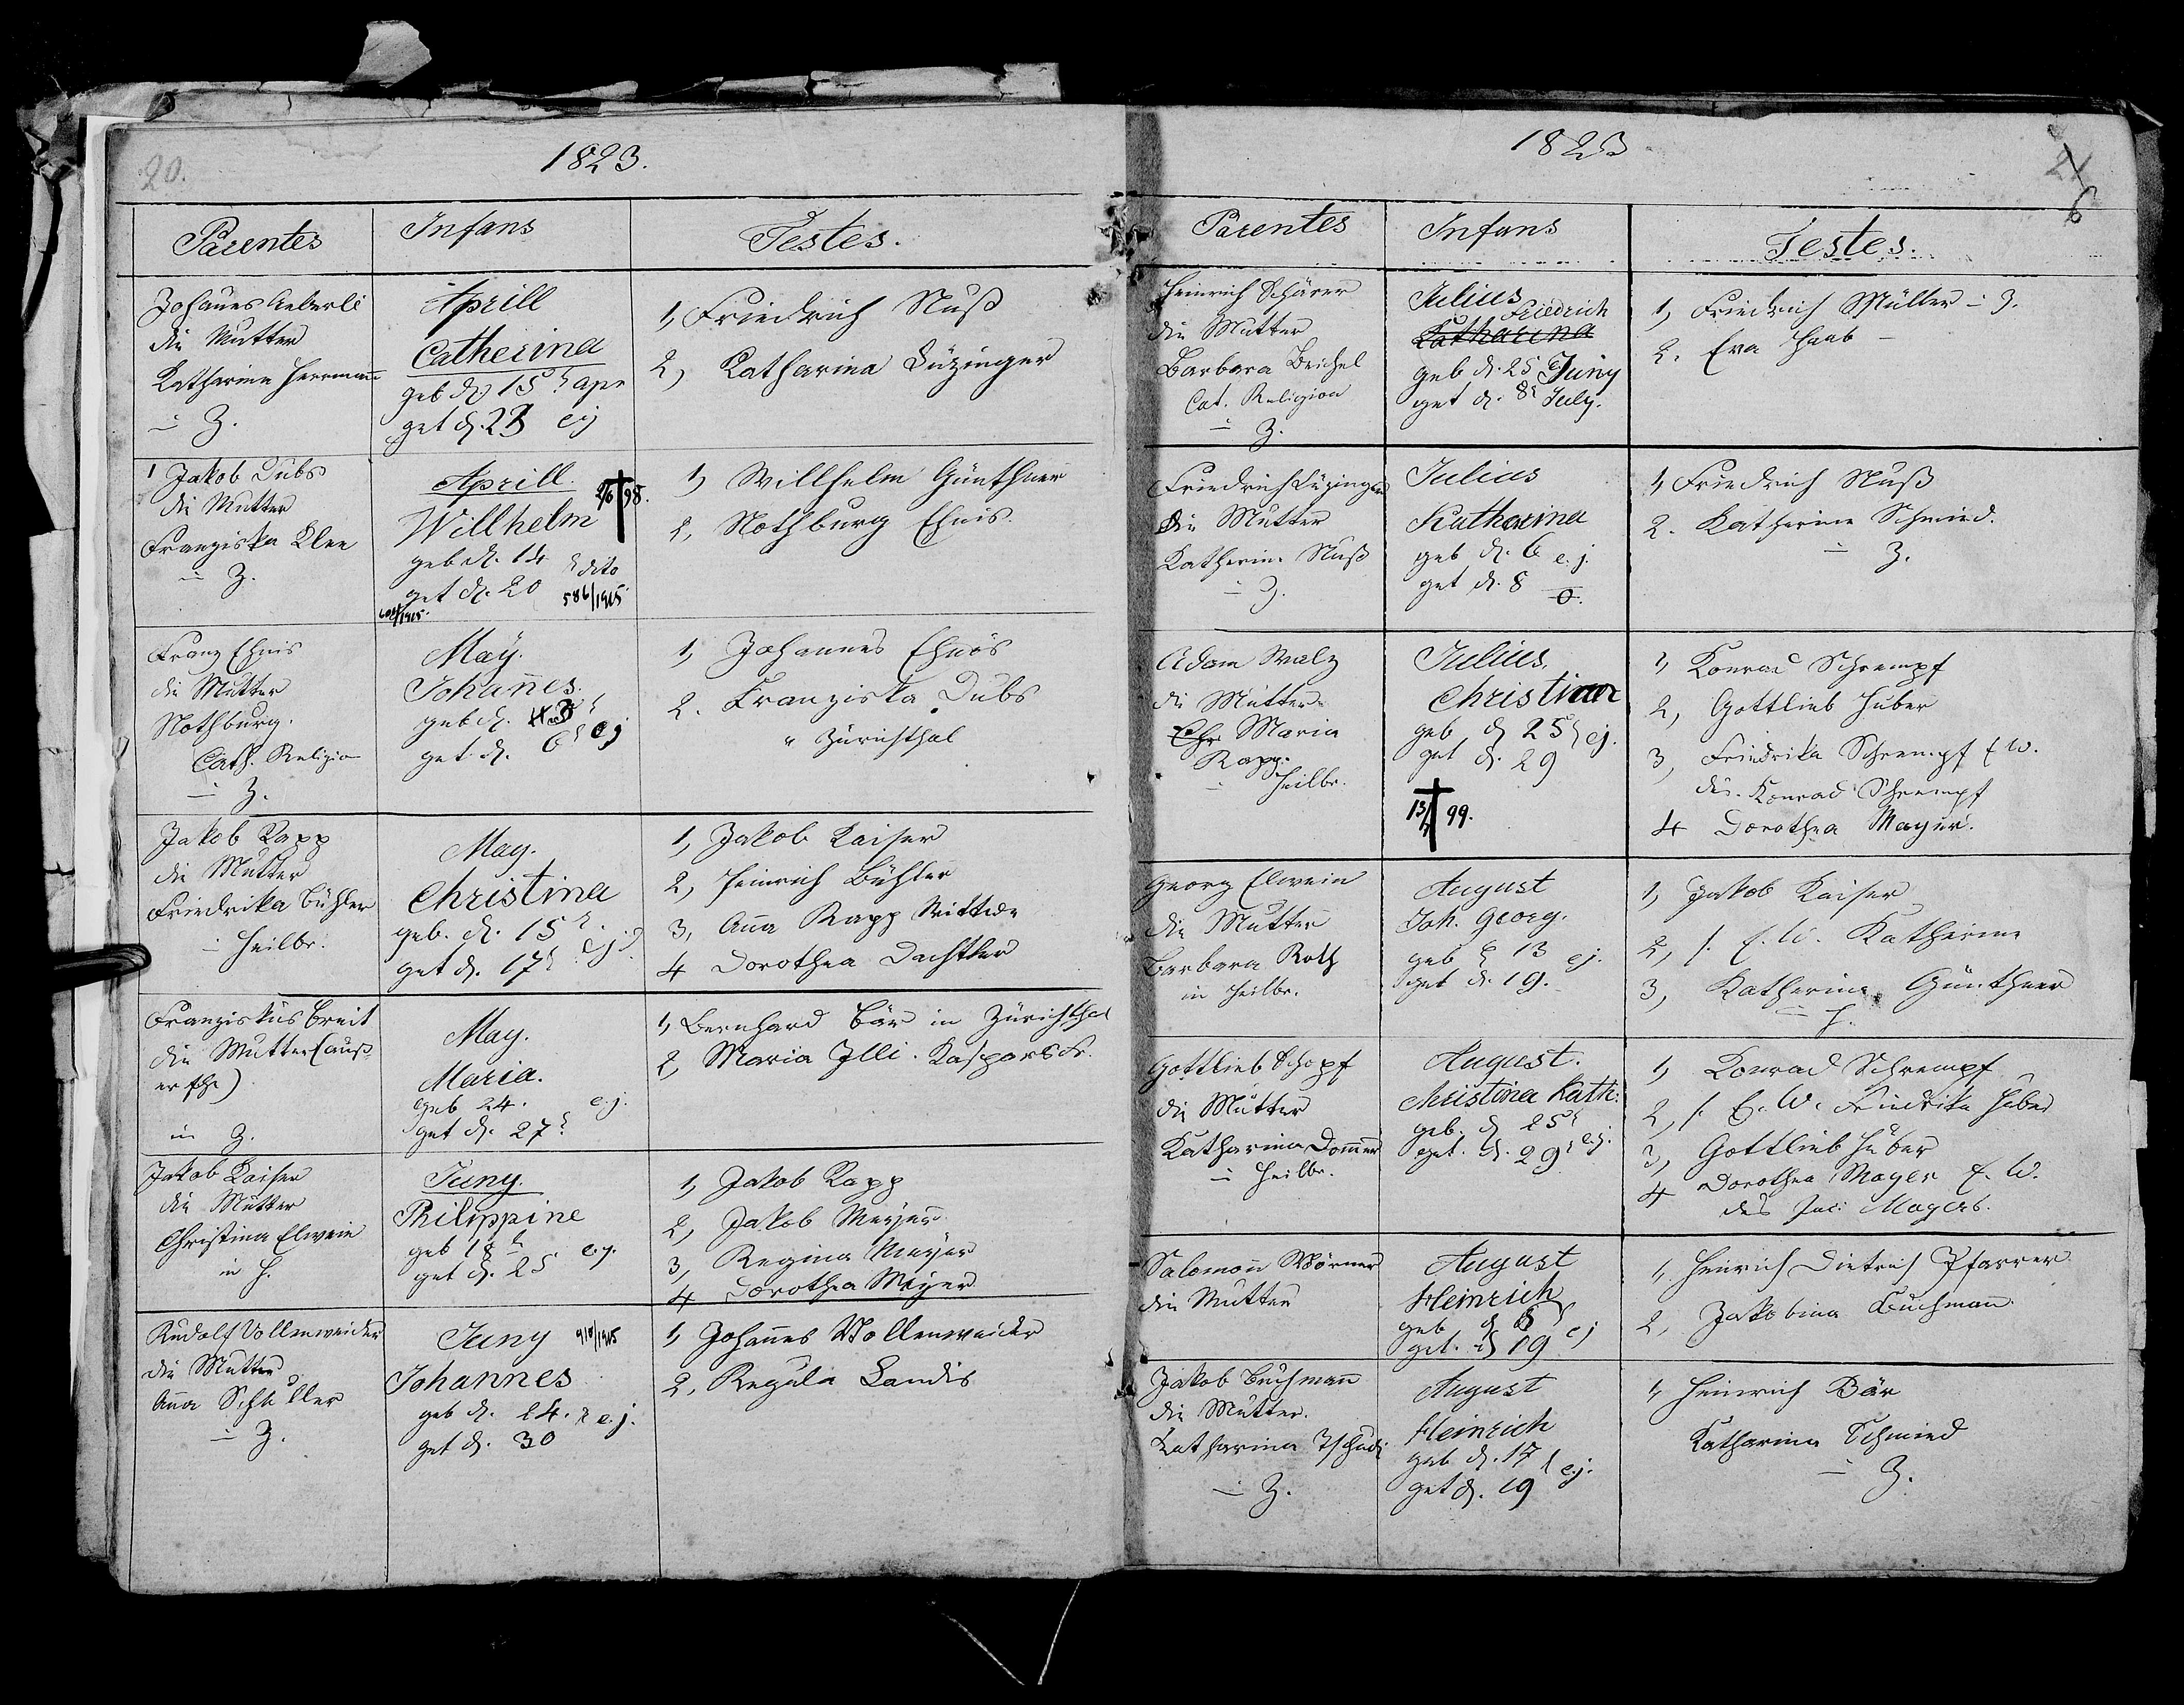 20.
1823.
Parentes
Infans
Testes.
Johannes Aeberli
die Mutter
Katharina Herrmann
in Z.
Aprill
Catherina
geb d. 15t apr
get d. 23 ej
1, Friedrich Nuß
2, Katharina Luzinger
Jakob Dubs
die Mutter
Franziska Klee
in Z.
Aprill.
Willhelm
geb d. 14
get d. 20 dito
586/1915.
1, Willhelm Günthner
2, Nothburg Ehnis.
Franz Ehnis
die Mutter
Nothburg.
Cath. Religion
in Z.
May.
Johannes.
geb d. 3
get d. 6 ej
1, Johannes Ehnis
2. Franziska Dubs
Zürichthal
Jakob Rapp
die Mutter
Friedrika Bühler
in Heilbr.
May.
Christina
geb. d. 15t.
get d. 17t ej.
1, Jakob Kaiser
2, Heinrich Bühler
3, Anna Rapp Wittwe
4 Dorothea Dachtler
Franziskus Breit
die Mutter (auß
er Ehe)
in Z.
May.
Maria.
geb 24. e.j.
get d. 27t
1, Bernhard Bär in Zürichthal
2, Maria Illi. Kaspars Fr.
Jakob Kaiser
die Mutter
Christina Elwein
in H.
Juny.
Philippine
geb 18t
get d. 25 e.j.
1, Jakob Rapp
2, Jakob Meyer
3, Regina Meyer
4 Dorothea Meyer
Rudolf Vollenweider
die Mutter
Anna
in Z.
Juny 910/1915
Johannes
geb d. 24. e.j.
get d. 30
1, Johannes Vollenweider
2, Regula Landis
1823
6
Parentes
Infans
Testes.
Heinrich Schärer
die Mutter
Barbara Beichel
Cat. Religion
in Z.
Julius
Friedrich
Katharina
geb d. 25 Juny
get d. 8t July.
1, Friedrich Müller in Z.
2. Eva Haab
Friedrich Luzinger
die Mutter
Katherine Nuß
in Z.
Julius
Katharina
geb d. 6 e.j.
get d. 8
1, Friedrich Nuß
2. Katharina Schmied.
in Z.
Adam Walz
die Mutter
Maria
Rapp.
in Heilbr.
Julius.
Christian
geb d 25 ej.
get d. 29
13/ 99.
1, Konrad Schrempf
2, Gottlieb Huber
3, Friedrika Schrempf E. W.
des Konrad Schrempf
4 Dorothea Mayer.
Georg Elwein
die Mutter
Barbara Roth
in Heilbr.
August
Joh. Georg.
geb 13 ej.
get d. 19.
1, Jakob Kaiser
2, s. E. W. Katharina
3, Katharina Günthner
in H.
Gottlieb Schopf
die Mutter
Katharina Dommer
in Heilbr.
August.
Christina Kath:
geb. d 25t
get. d. 29t e.j.
1, Konrad Schrempf
2, s. E. W. Friedrika Huber
3, Gottlieb Huber
4 Dorothea Mayer E. W.
des Jac: Mayers.
Salomonn Wörner
die Mutter
August
Heinrich
geb d 8
get. d 19 ej
1, Heinrich Dietrich Pfarrer
2, Jakobina Buchmann
Jakob Buchmann
die Mutter.
Katharina Tschudi
in Z.
August
Heinrich
geb d. 17
get d. 19 e.j.
1, Heinrich Bär
Katharina Schmied
in Z.